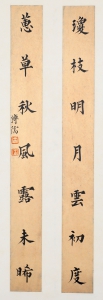 瓊枝明月雲初度
蕙草秋風露未晞
溥儒